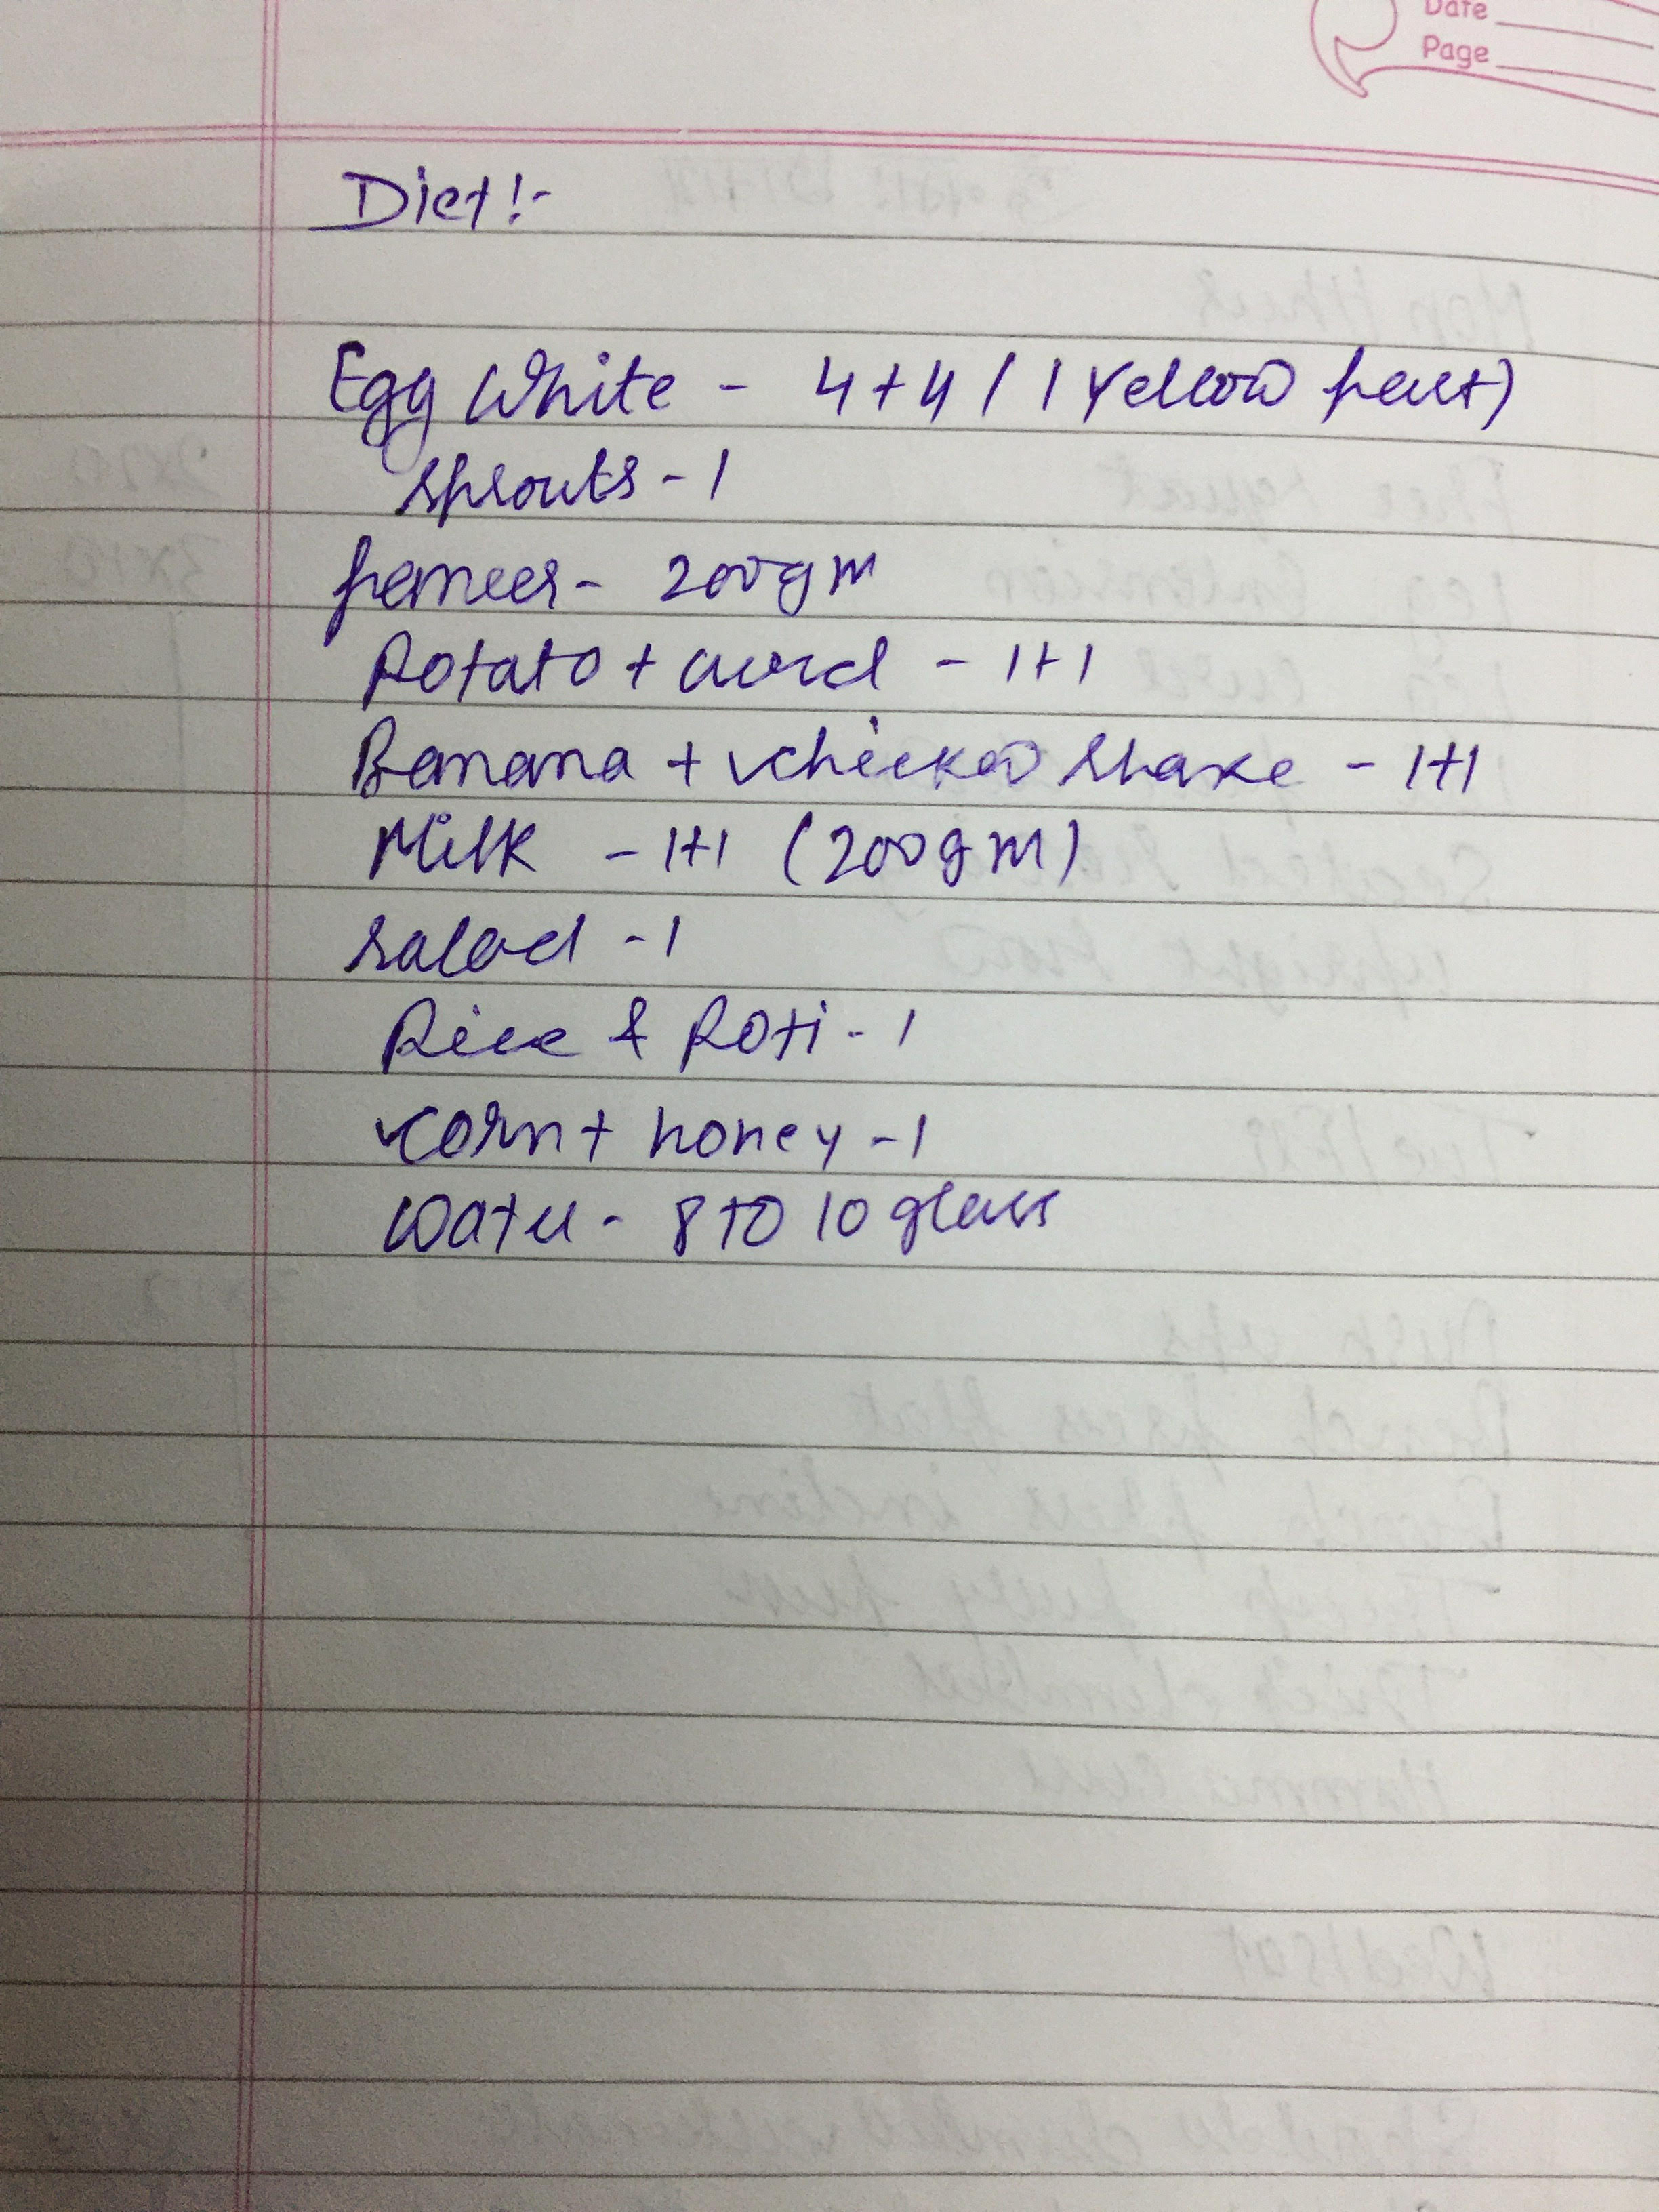 Date
Page
Diet :-
Egg White - 4+4 (1 Yellow part)
Sprouts - 1
paneer - 200gm
Potato + curd - 1+1
Banana + chickoo shake - 1+1
Milk - 1+1 (200gm)
Salad - 1
Rice & Roti - 1
Corn + honey - 1
Water - 8 to 10 glass